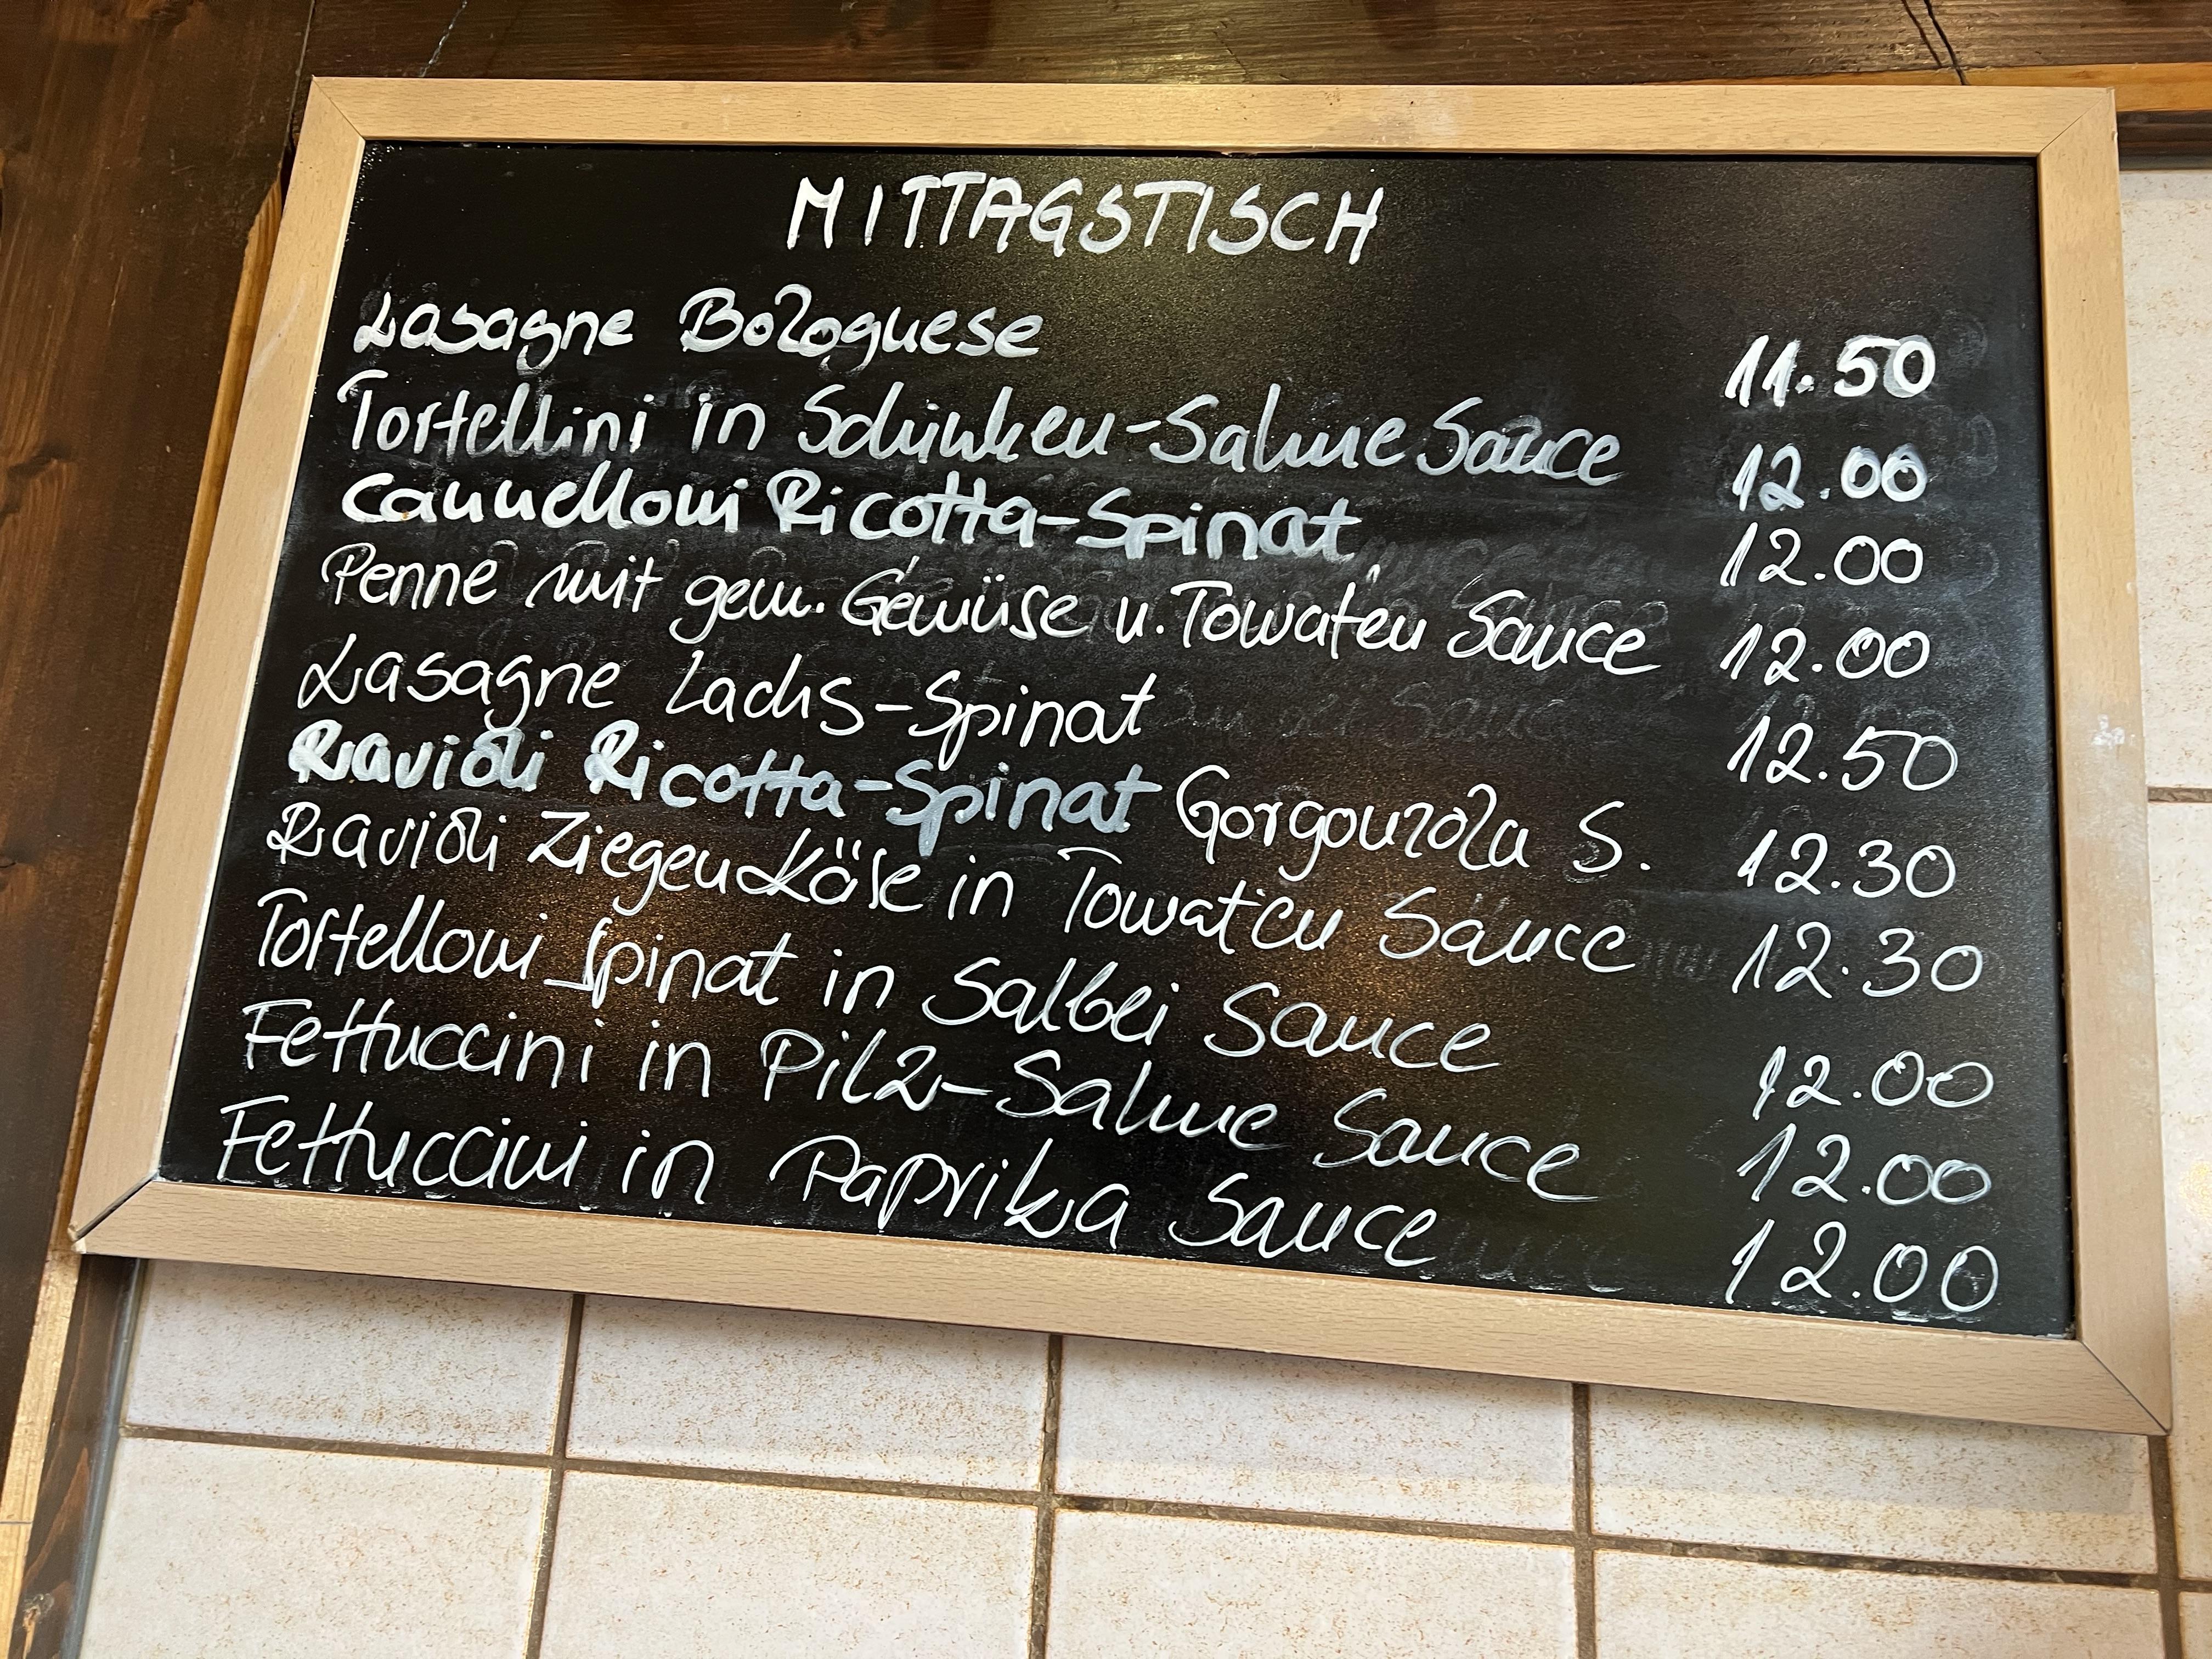 MITTAGSTISCH
Lasagne Bolognese 11.50
Tortellini in Schinken-Sahne Sauce 12.00
Cannelloni Ricotta-Spinat 12.00
Penne mit gem. Gemüse u. Tomaten Sauce 12.00
Lasagne Lachs-Spinat 12.50
Ravioli Ricotta-Spinat Gorgonzola S. 12.30
Ravioli Ziegenkäse in Tomaten Sauce 12.30
Tortelloni Spinat in Salbei Sauce 12.00
Fettuccini in Pilz-Sahne Sauce 12.00
Fettuccini in Paprika Sauce 12.00